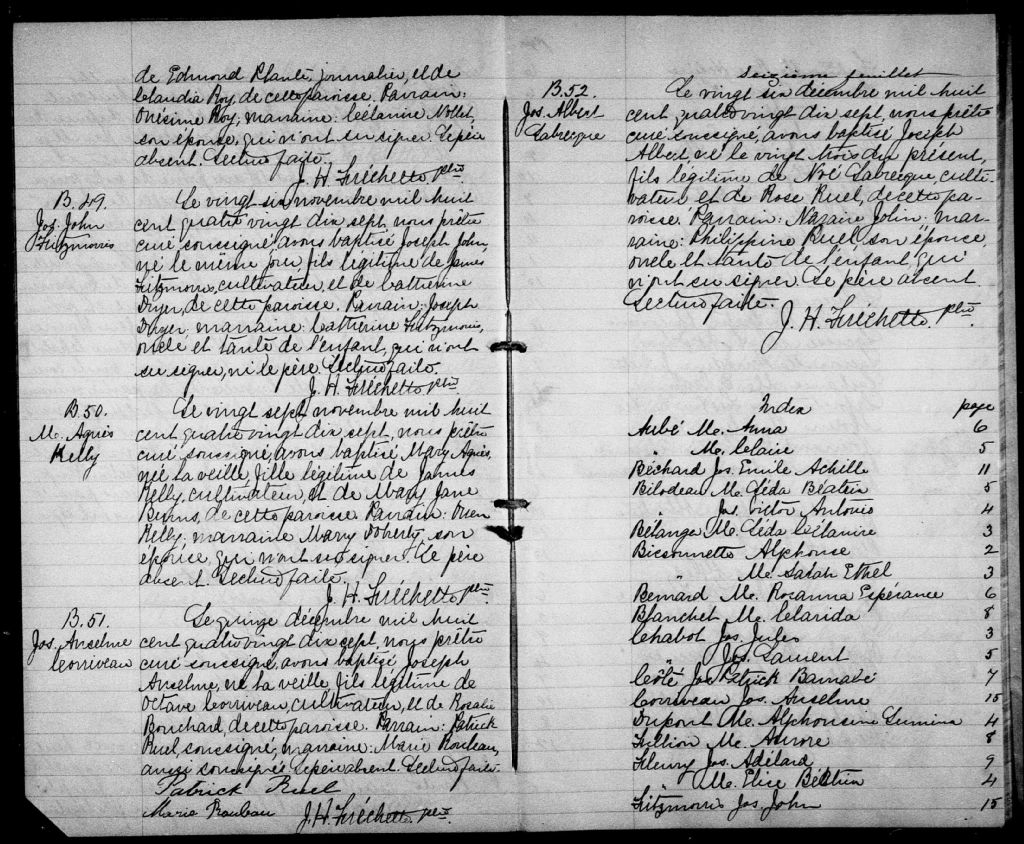 de Edmond Planté, journalier, et de
Claudia Roy, de cette paroisse. Parrain:
Onésime Roy, marraine: Célanire Nollet,
son épouse, qui n'ont su signer. Le père
absent. Lecture faite.
J. H. Fréchette, ptre
B. 49.
Jos. John
Fitzmorris
Le vingt six novembre mil huit
cent quatre vingt dix sept, nous prêtre
curé soussigné, avons baptisé Joseph John,
né le même jour, fils légitime de James
Fitzmorris, cultivateur, et de Catherine
Dwyer, de cette paroisse. Parrain: Joseph
Dwyer, marraine: Catherine Fitzmorris,
oncle et tante de l'enfant, qui n'ont
su signer, ni le père. Lecture faite.
J. H. Fréchette, ptre
B. 50.
M. Agnès
Kelly
Le vingt sept novembre mil huit
cent quatre vingt dix sept, nous prêtre
curé soussigné, avons baptisé Mary Agnès,
née la veille, fille légitime de James
Kelly, cultivateur, et de Mary Jane
Burns, de cette paroisse. Parrain: Owen
Kelly, marraine Mary Doherty, son
épouse, qui n'ont su signer. Le père
absent. Lecture faite.
J. H. Fréchette, ptre.
B. 51.
Jos. Anselme
Corriveau
Le quinze décembre mil huit
cent quatre vingt dix sept, nous prêtre
curé soussigné, avons baptisé Joseph
Anselme, né la veille, fils légitime de
Octave Corriveau, cultivateur, et de Rosalie
Bouchard de cette paroisse. Parrain: Patrick
Ruel, soussigné, marraine: Marie Rouleau,
aussi soussignée. Le père absent. Lecture faite.
Patrick Ruel
Marie Rouleau
J. H. Fréchette, ptre.
Seizième feuillet
B. 52.
Jos. Albert
Labrecque
Le vingt six décembre mil huit
cent quatre vingt dix sept, nous prêtre
curé soussigné, avons baptisé Joseph
Albert, né le vingt trois du présent,
fils légitime de Noé Labrecque, culti-
vateur et de Rose Ruel, de cette pa-
roisse. Parrain: Nazaire John, mar-
raine: Philippine Ruel son épouse,
oncle et tante de l'enfant qui
n'ont su signer. Le père absent
Lecture faite.
J. H. Fréchette, ptre.
Index page
Aubé M. Anna 6
" M. Claire 5
Béchard Jos. Emile Achille 11
Bilodeau M. Léda Béatrix 5
" Jos. Victor Antonio 4
Bélanger M. Léda Célanire 3
Bissonnette Alphonse 2
" M. Sarah Ethel 3
Bernard M. Rosanna Espérance 6
Blanchet M. Clarida 8
Chabot Jos. Jules 3
" Jos. Laurent 5
Côté Jos. Patrick Barnabé 7
Corriveau Jos. Anselme 15
Dupont M. Alphonsine Lumina 4
Fillion M. Aurore 8
Fleury Jos. Adélard 9
" M. Elise Béatrix 4
Fitzmorris Jos. John 15